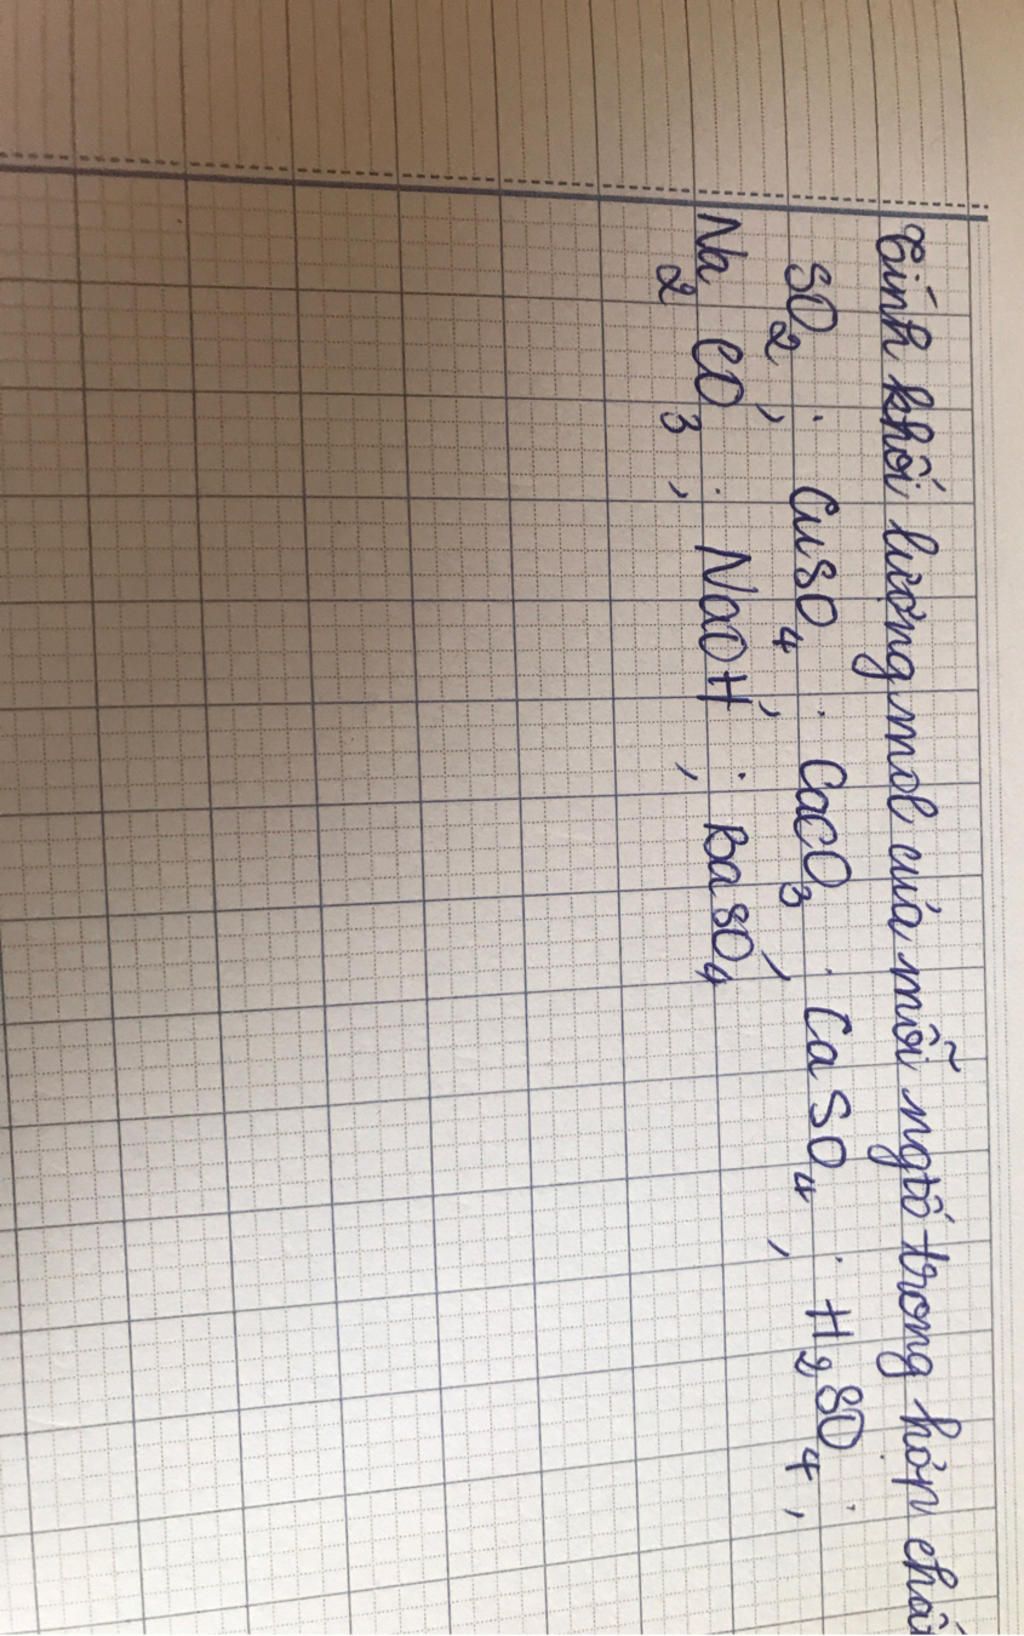 Tính khối lượng mol của mỗi ngtố trong hợp chất
SO₂; CuSO₄; CaCO₃; CaSO₄; H₂SO₄;
Na₂CO₃; NaOH; BaSO₄